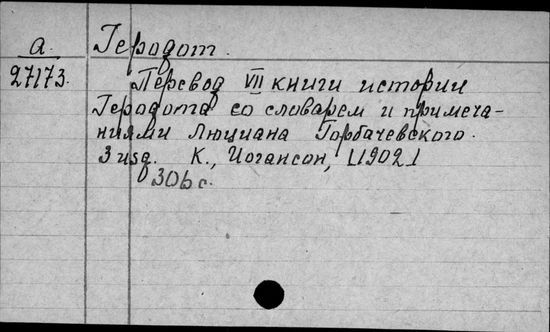 а. Геродот.
27173. Перевод VII книги истории
Геродота со словарем и примеча-
ниями Люциана Горбачевского.
3 изд. К., Иогансон, [1902]
306 с.